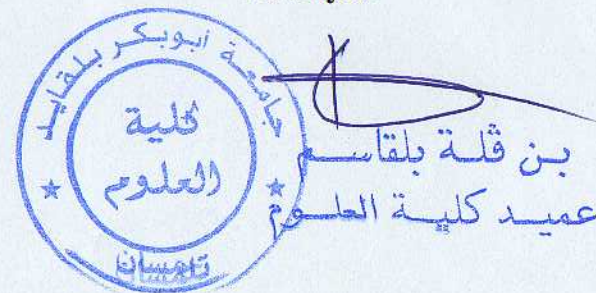 جامعة أبوبكر بلقايد
كلية
العلوم
تلمسان
بن ڤلة بلقاسم
عميد كلية العلوم